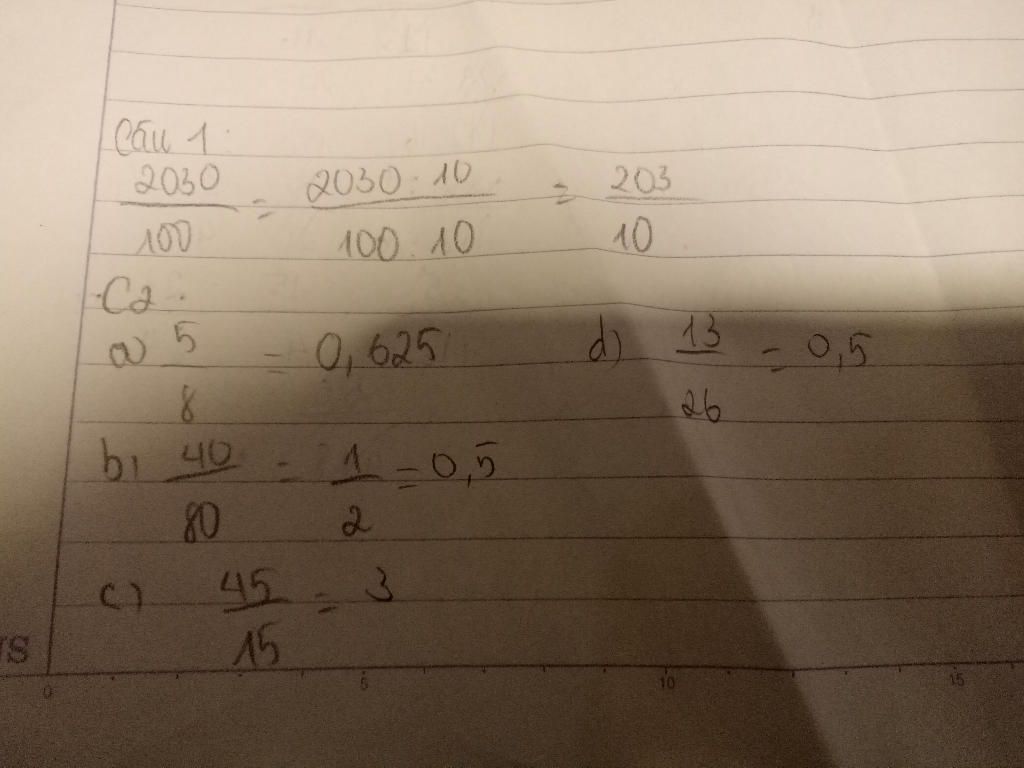 Câu 1:
2030/100 = 2030 : 10/100 : 10 = 203/10
C2:
a) 5/8 = 0,625 d) 13/26 = 0,5
b) 40/80 = 1/2 = 0,5
c) 45/15 = 3
0 5 10 15